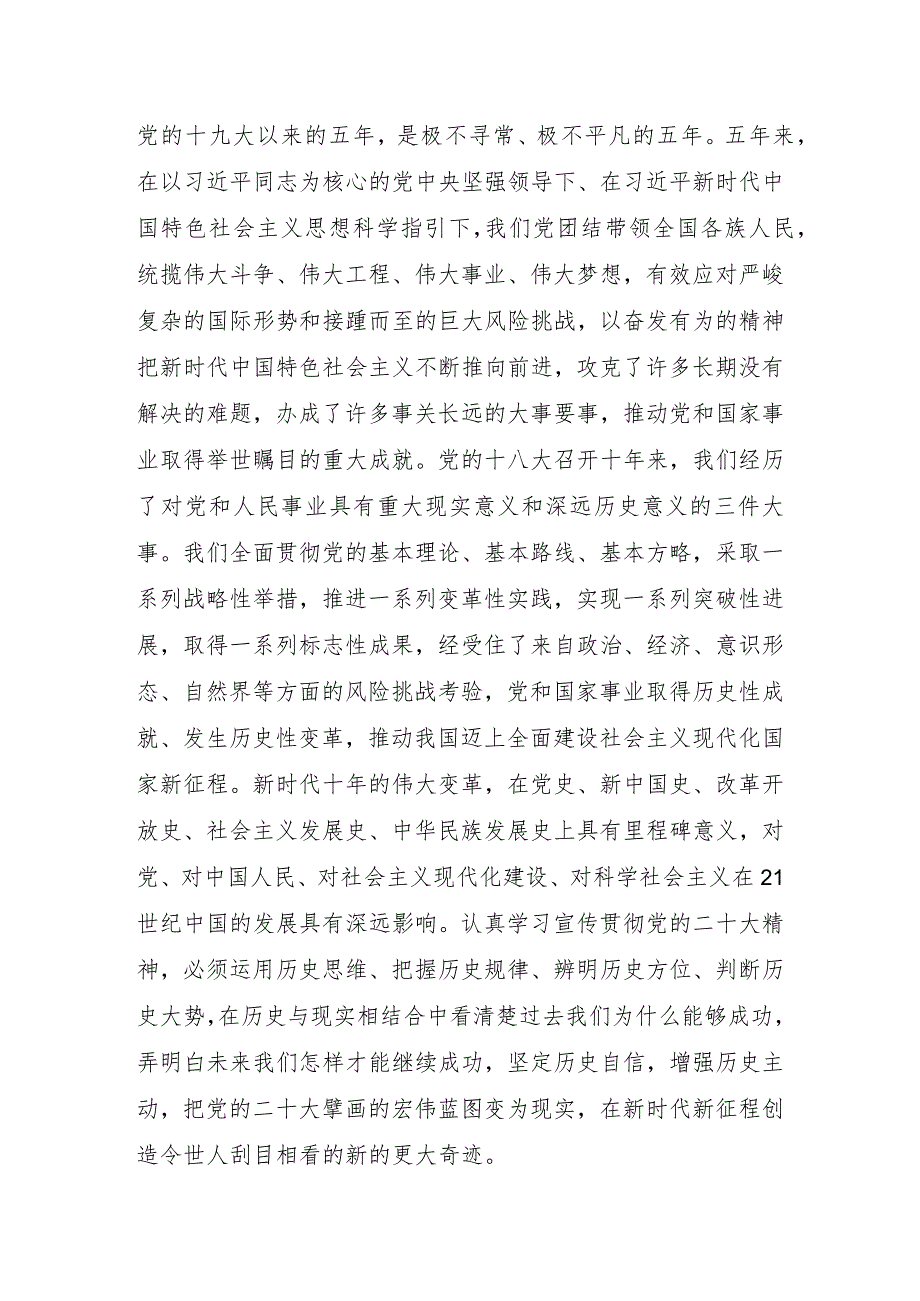 党的十九大以来的五年，是极不寻常、极不平凡的五年。五年来，
在以习近平同志为核心的党中央坚强领导下、在习近平新时代中
国特色社会主义思想科学指引下，我们党团结带领全国各族人民，
统揽伟大斗争、伟大工程、伟大事业、伟大梦想，有效应对严峻
复杂的国际形势和接踵而至的巨大风险挑战，以奋发有为的精神
把新时代中国特色社会主义不断推向前进，攻克了许多长期没有
解决的难题，办成了许多事关长远的大事要事，推动党和国家事
业取得举世瞩目的重大成就。党的十八大召开十年来，我们经历
了对党和人民事业具有重大现实意义和深远历史意义的三件大
事。我们全面贯彻党的基本理论、基本路线、基本方略，采取一
系列战略性举措，推进一系列变革性实践，实现一系列突破性进
展，取得一系列标志性成果，经受住了来自政治、经济、意识形
态、自然界等方面的风险挑战考验，党和国家事业取得历史性成
就、发生历史性变革，推动我国迈上全面建设社会主义现代化国
家新征程。新时代十年的伟大变革，在党史、新中国史、改革开
放史、社会主义发展史、中华民族发展史上具有里程碑意义，对
党、对中国人民、对社会主义现代化建设、对科学社会主义在 21
世纪中国的发展具有深远影响。认真学习宣传贯彻党的二十大精
神，必须运用历史思维、把握历史规律、辨明历史方位、判断历
史大势，在历史与现实相结合中看清楚过去我们为什么能够成功，
弄明白未来我们怎样才能继续成功，坚定历史自信，增强历史主
动，把党的二十大擘画的宏伟蓝图变为现实，在新时代新征程创
造令世人刮目相看的新的更大奇迹。